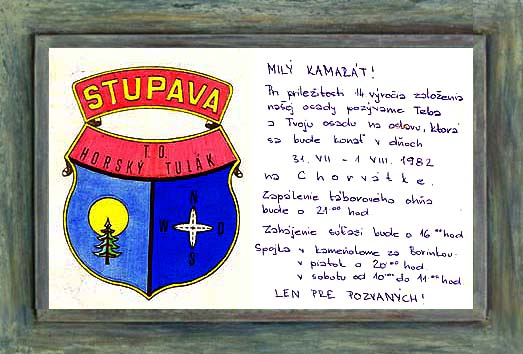 STUPAVA
T.O.
HORSKÝ TULÁK
N
W O
S
MILÝ KAMARÁT!
Pri príležitosti 14 výročia založenia
našej osady pozývame Teba
a Tvoju osadu na oslavu, ktorá
sa bude konať v dňoch
31. VII - 1 VIII. 1982
na Chorvátke.
Zapálenie táborového ohňa
bude o 21⁰⁰ hod
Zahájenie súťaží bude o 16⁰⁰ hod
Spojka v kameňolome za Borinkou
v piatok o 20⁰⁰ hod
v sobotu od 10⁰⁰ do 11⁰⁰ hod.
LEN PRE POZVANÝCH!